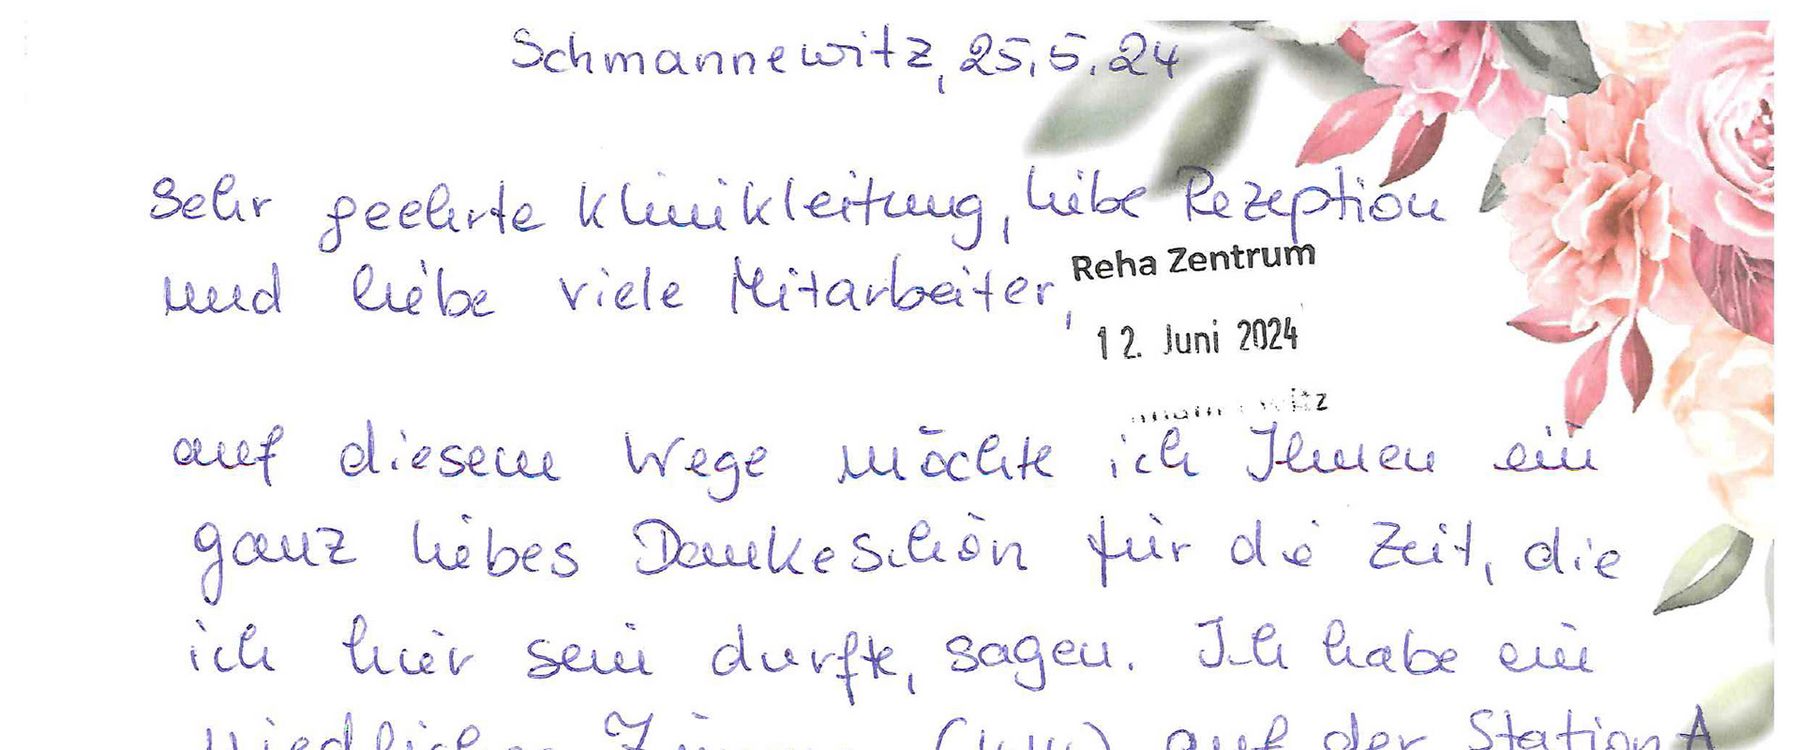 Schmannewitz, 25.5.24
Sehr geehrte Klinikleitung, liebe Rezeption
und liebe viele Mitarbeiter,
Reha Zentrum
12. Juni 2024
auf diesem Wege möchte ich Ihnen ein
ganz liebes Dankeschön für die Zeit, die
ich hier sein durfte, sagen. Ich habe ein
auf der Station A